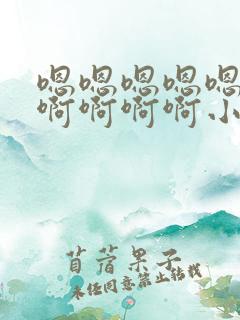 嗯嗯嗯嗯嗯
啊啊啊啊小
苜蓿果子
未经同意禁止转载